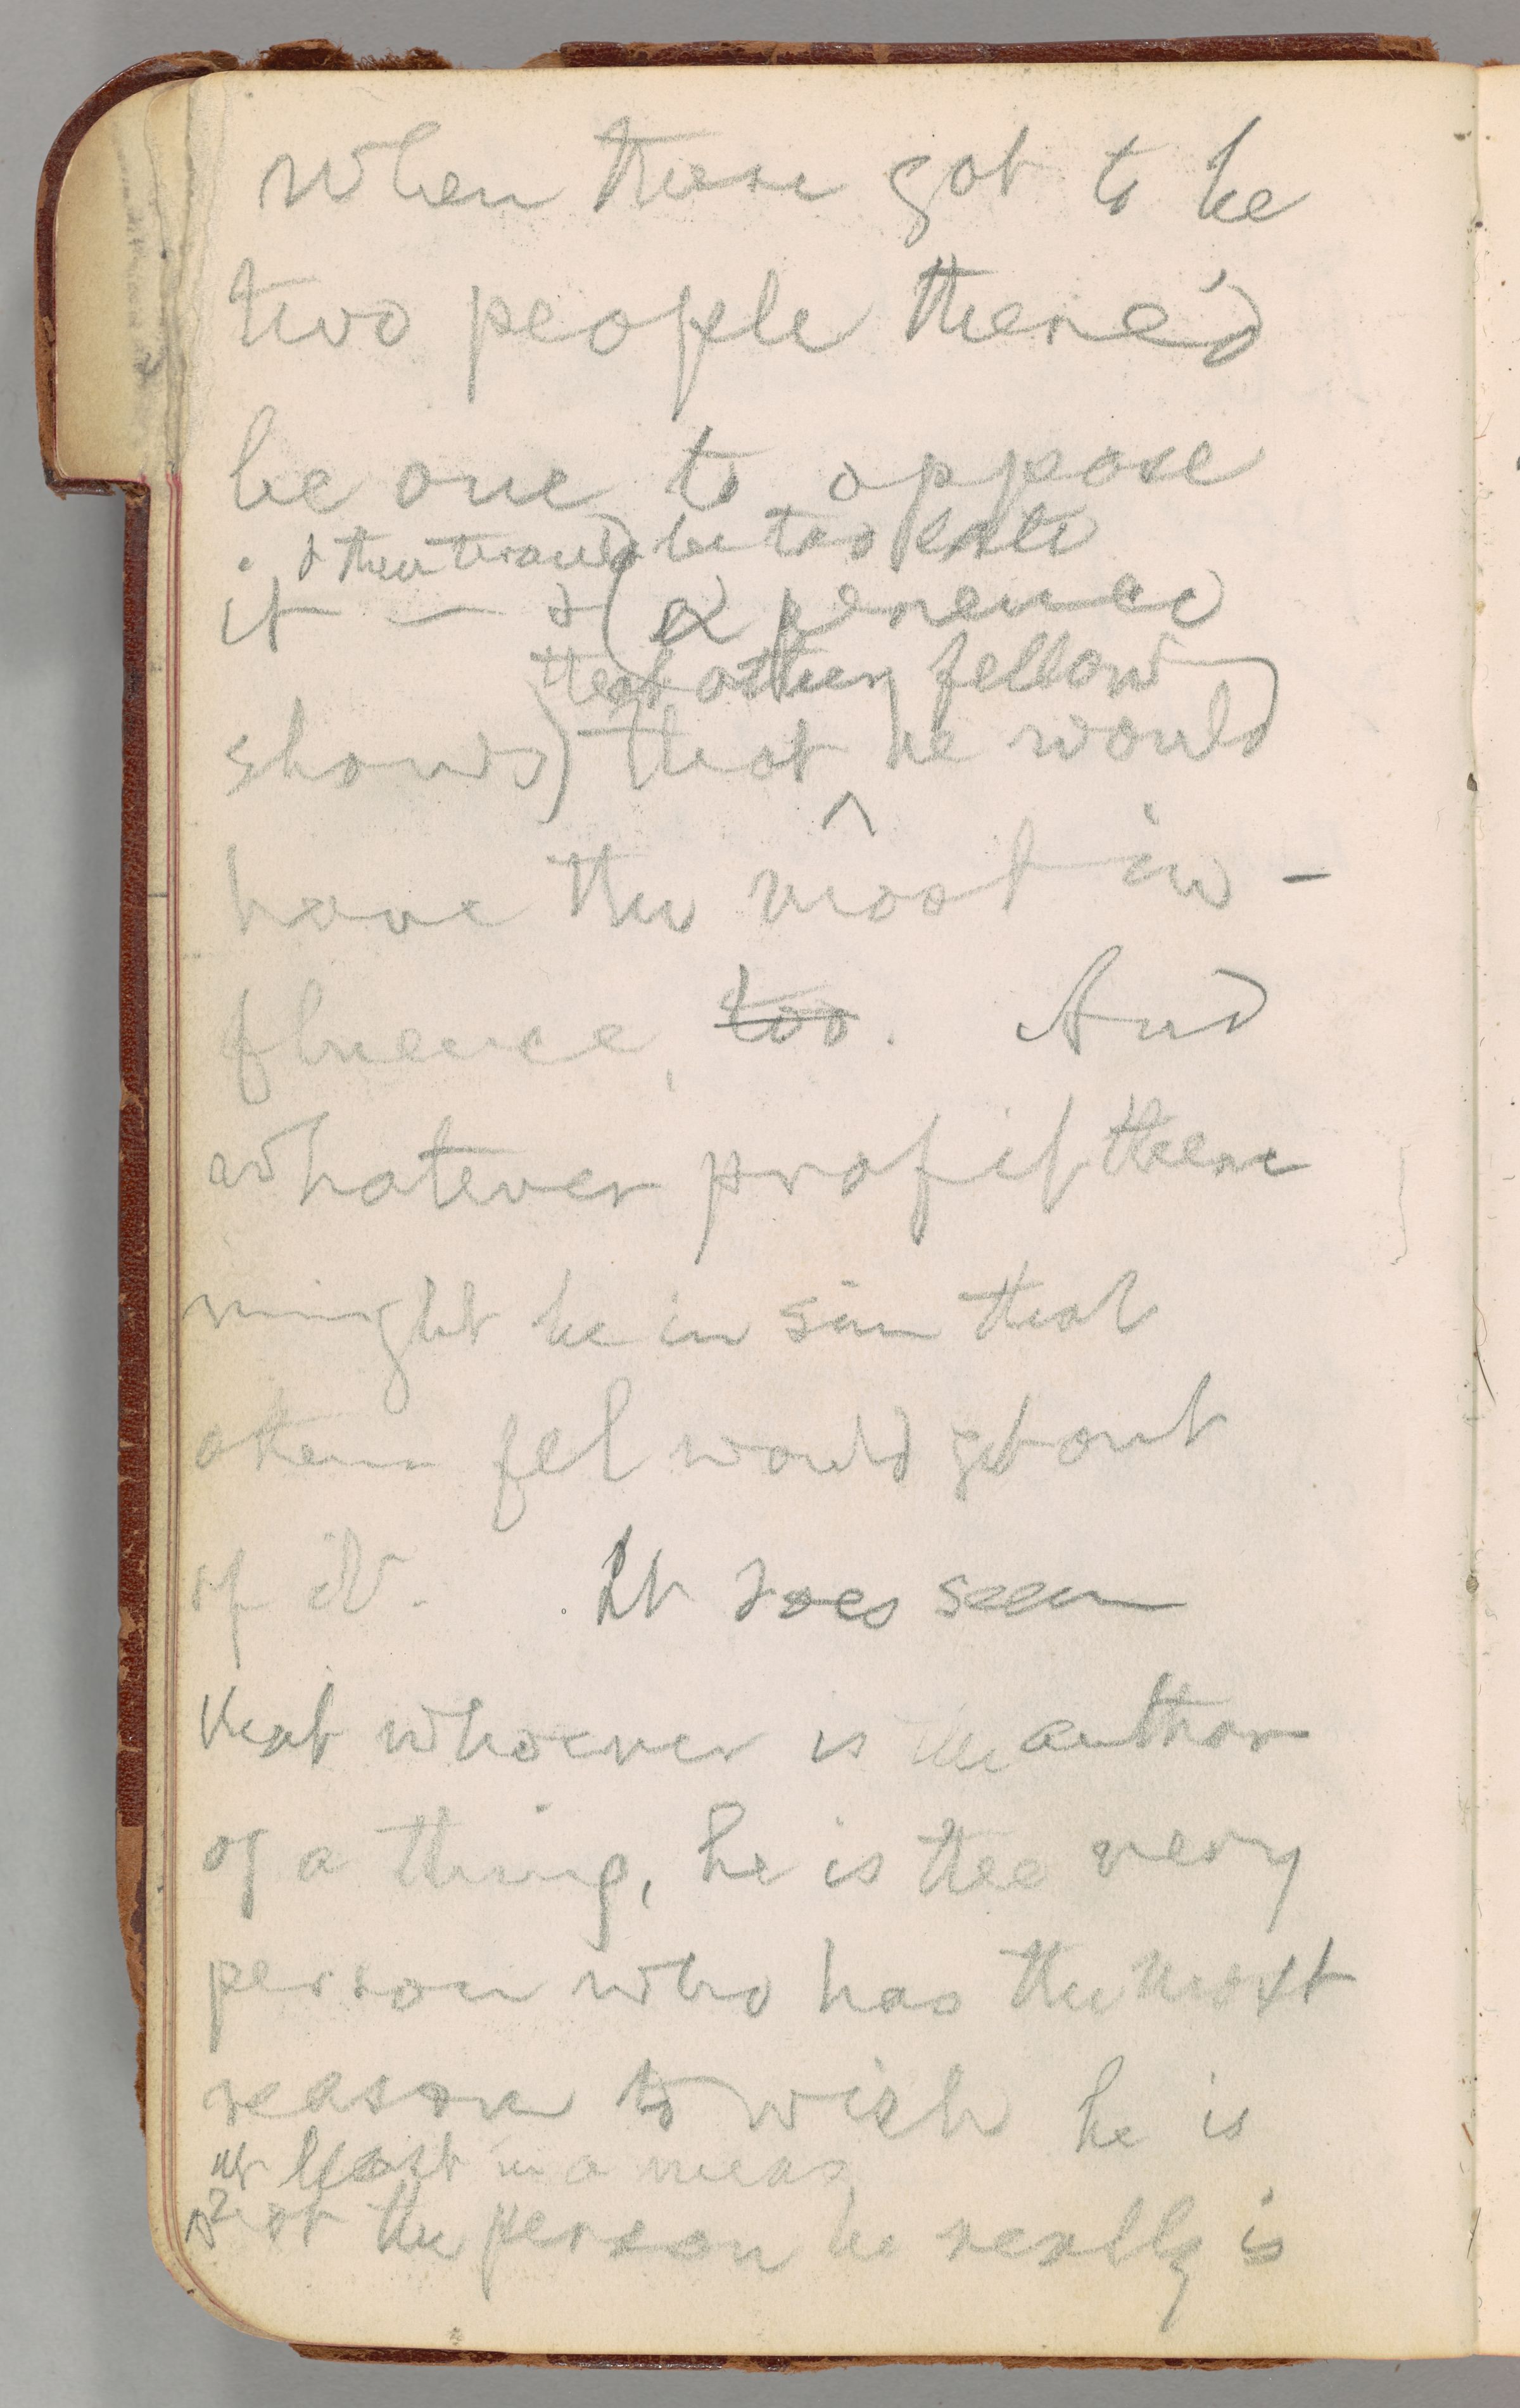 When there got to be
two people there'd
be one to oppose
& then twould be too late
it — & (experience
that other fellow
shows) that he would
^
have the most in-
fluence, too. And
whatever profit there
might be in sin that
other fel would get out
of it. It does seem
that whoever is the author
of a thing, he is the very
person who has the most
reason to wish he is
at least in a meas
not the person he really is